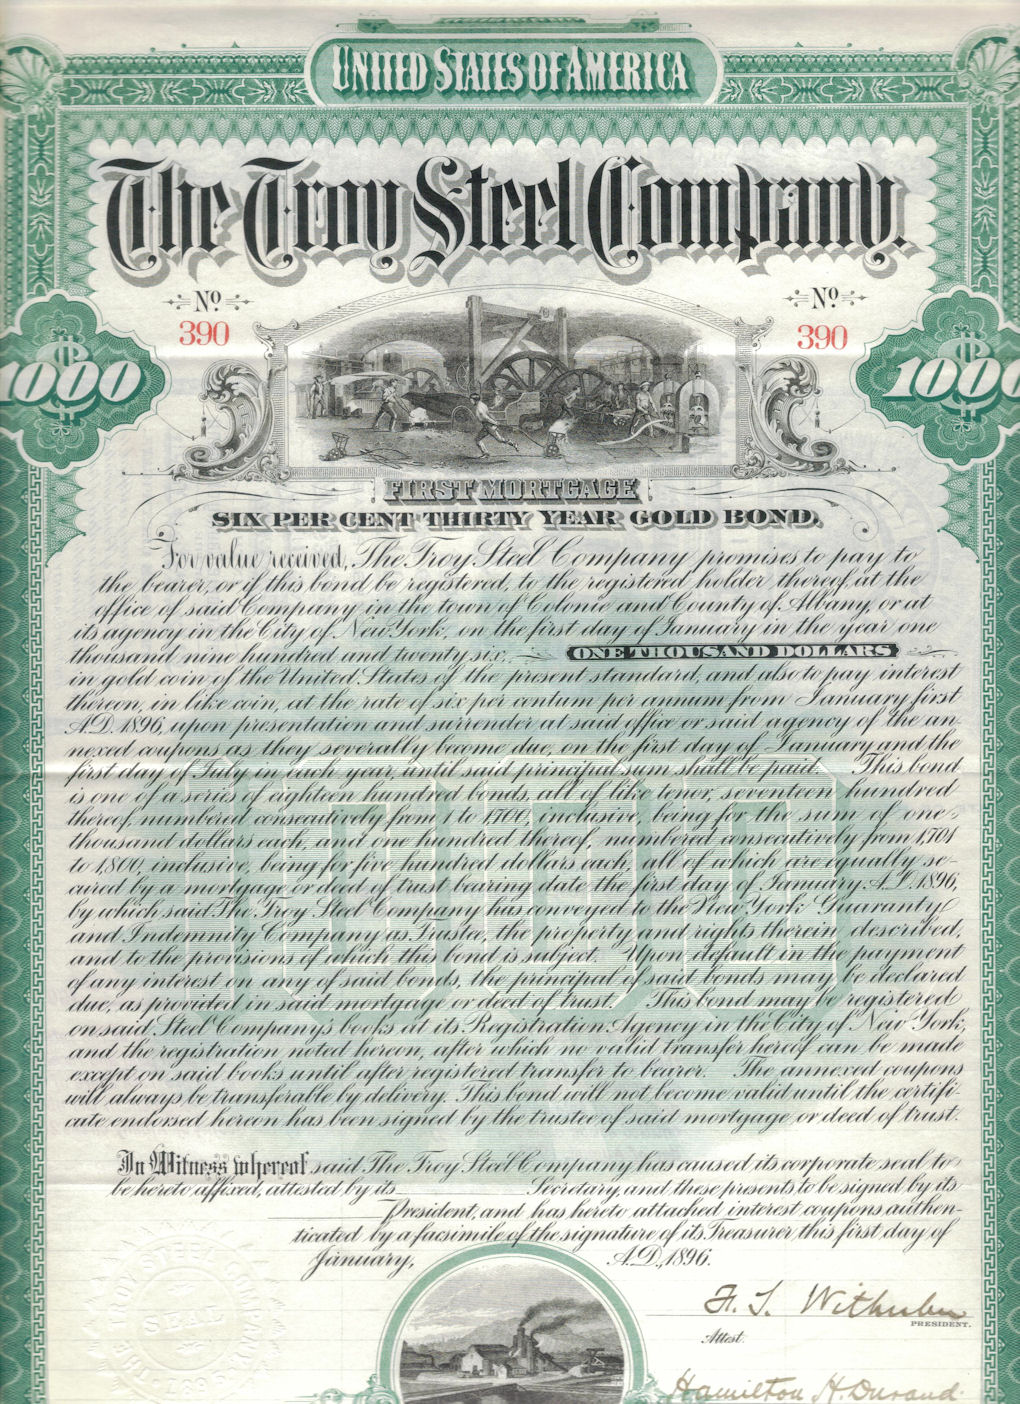 UNITED STATES OF AMERICA
The Troy Steel Company.
No No
390 390
$1000 $1000
FIRST MORTGAGE
SIX PER CENT THIRTY YEAR GOLD BOND.
For value received, The Troy Steel Company promises to pay to
the bearer, or if this bond be registered, to the registered holder thereof, at the
office of said Company in the town of Colonie and County of Albany, or at
its agency in the City of New York, on the first day of January in the year one
thousand nine hundred and twenty six, ONE THOUSAND DOLLARS
in gold coin of the United States of the present standard, and also to pay interest
thereon, in like coin, at the rate of six per centum per annum from January first
A.D. 1896, upon presentation and surrender at said office or said agency of the an-
nexed coupons as they severally become due, on the first day of January and the
first day of July in each year, until said principal sum shall be paid. This bond
is one of a series of eighteen hundred bonds, all of like tenor, seventeen hundred
thereof, numbered consecutively from 1 to 1,700, inclusive, being for the sum of one
thousand dollars each, and one hundred thereof, numbered consecutively from 1,701
to 1,800, inclusive, being for five hundred dollars each, all of which are equally se-
cured by a mortgage or deed of trust bearing date the first day of January A.D. 1896,
by which said The Troy Steel Company has conveyed to the New York Guaranty
and Indemnity Company as Trustee, the property and rights therein described,
and to the provisions of which this bond is subject. Upon default in the payment
of any interest on any of said bonds, the principal of said bonds may be declared
due, as provided in said mortgage or deed of trust. This bond may be registered
on said Steel Company's books at its Registration Agency in the City of New York,
and the registration noted hereon, after which no valid transfer hereof can be made
except on said books until after registered transfer to bearer. The annexed coupons
will always be transferable by delivery. This bond will not become valid until the certifi-
cate endorsed hereon has been signed by the trustee of said mortgage or deed of trust.
In Witness whereof said The Troy Steel Company has caused its corporate seal to
be hereto affixed, attested by its Secretary, and these presents to be signed by its
President, and has hereto attached interest coupons authen-
ticated by a facsimile of the signature of its Treasurer this first day of
January, A.D., 1896.
SEAL
PRESIDENT.
Attest.
Hamilton H. Durand